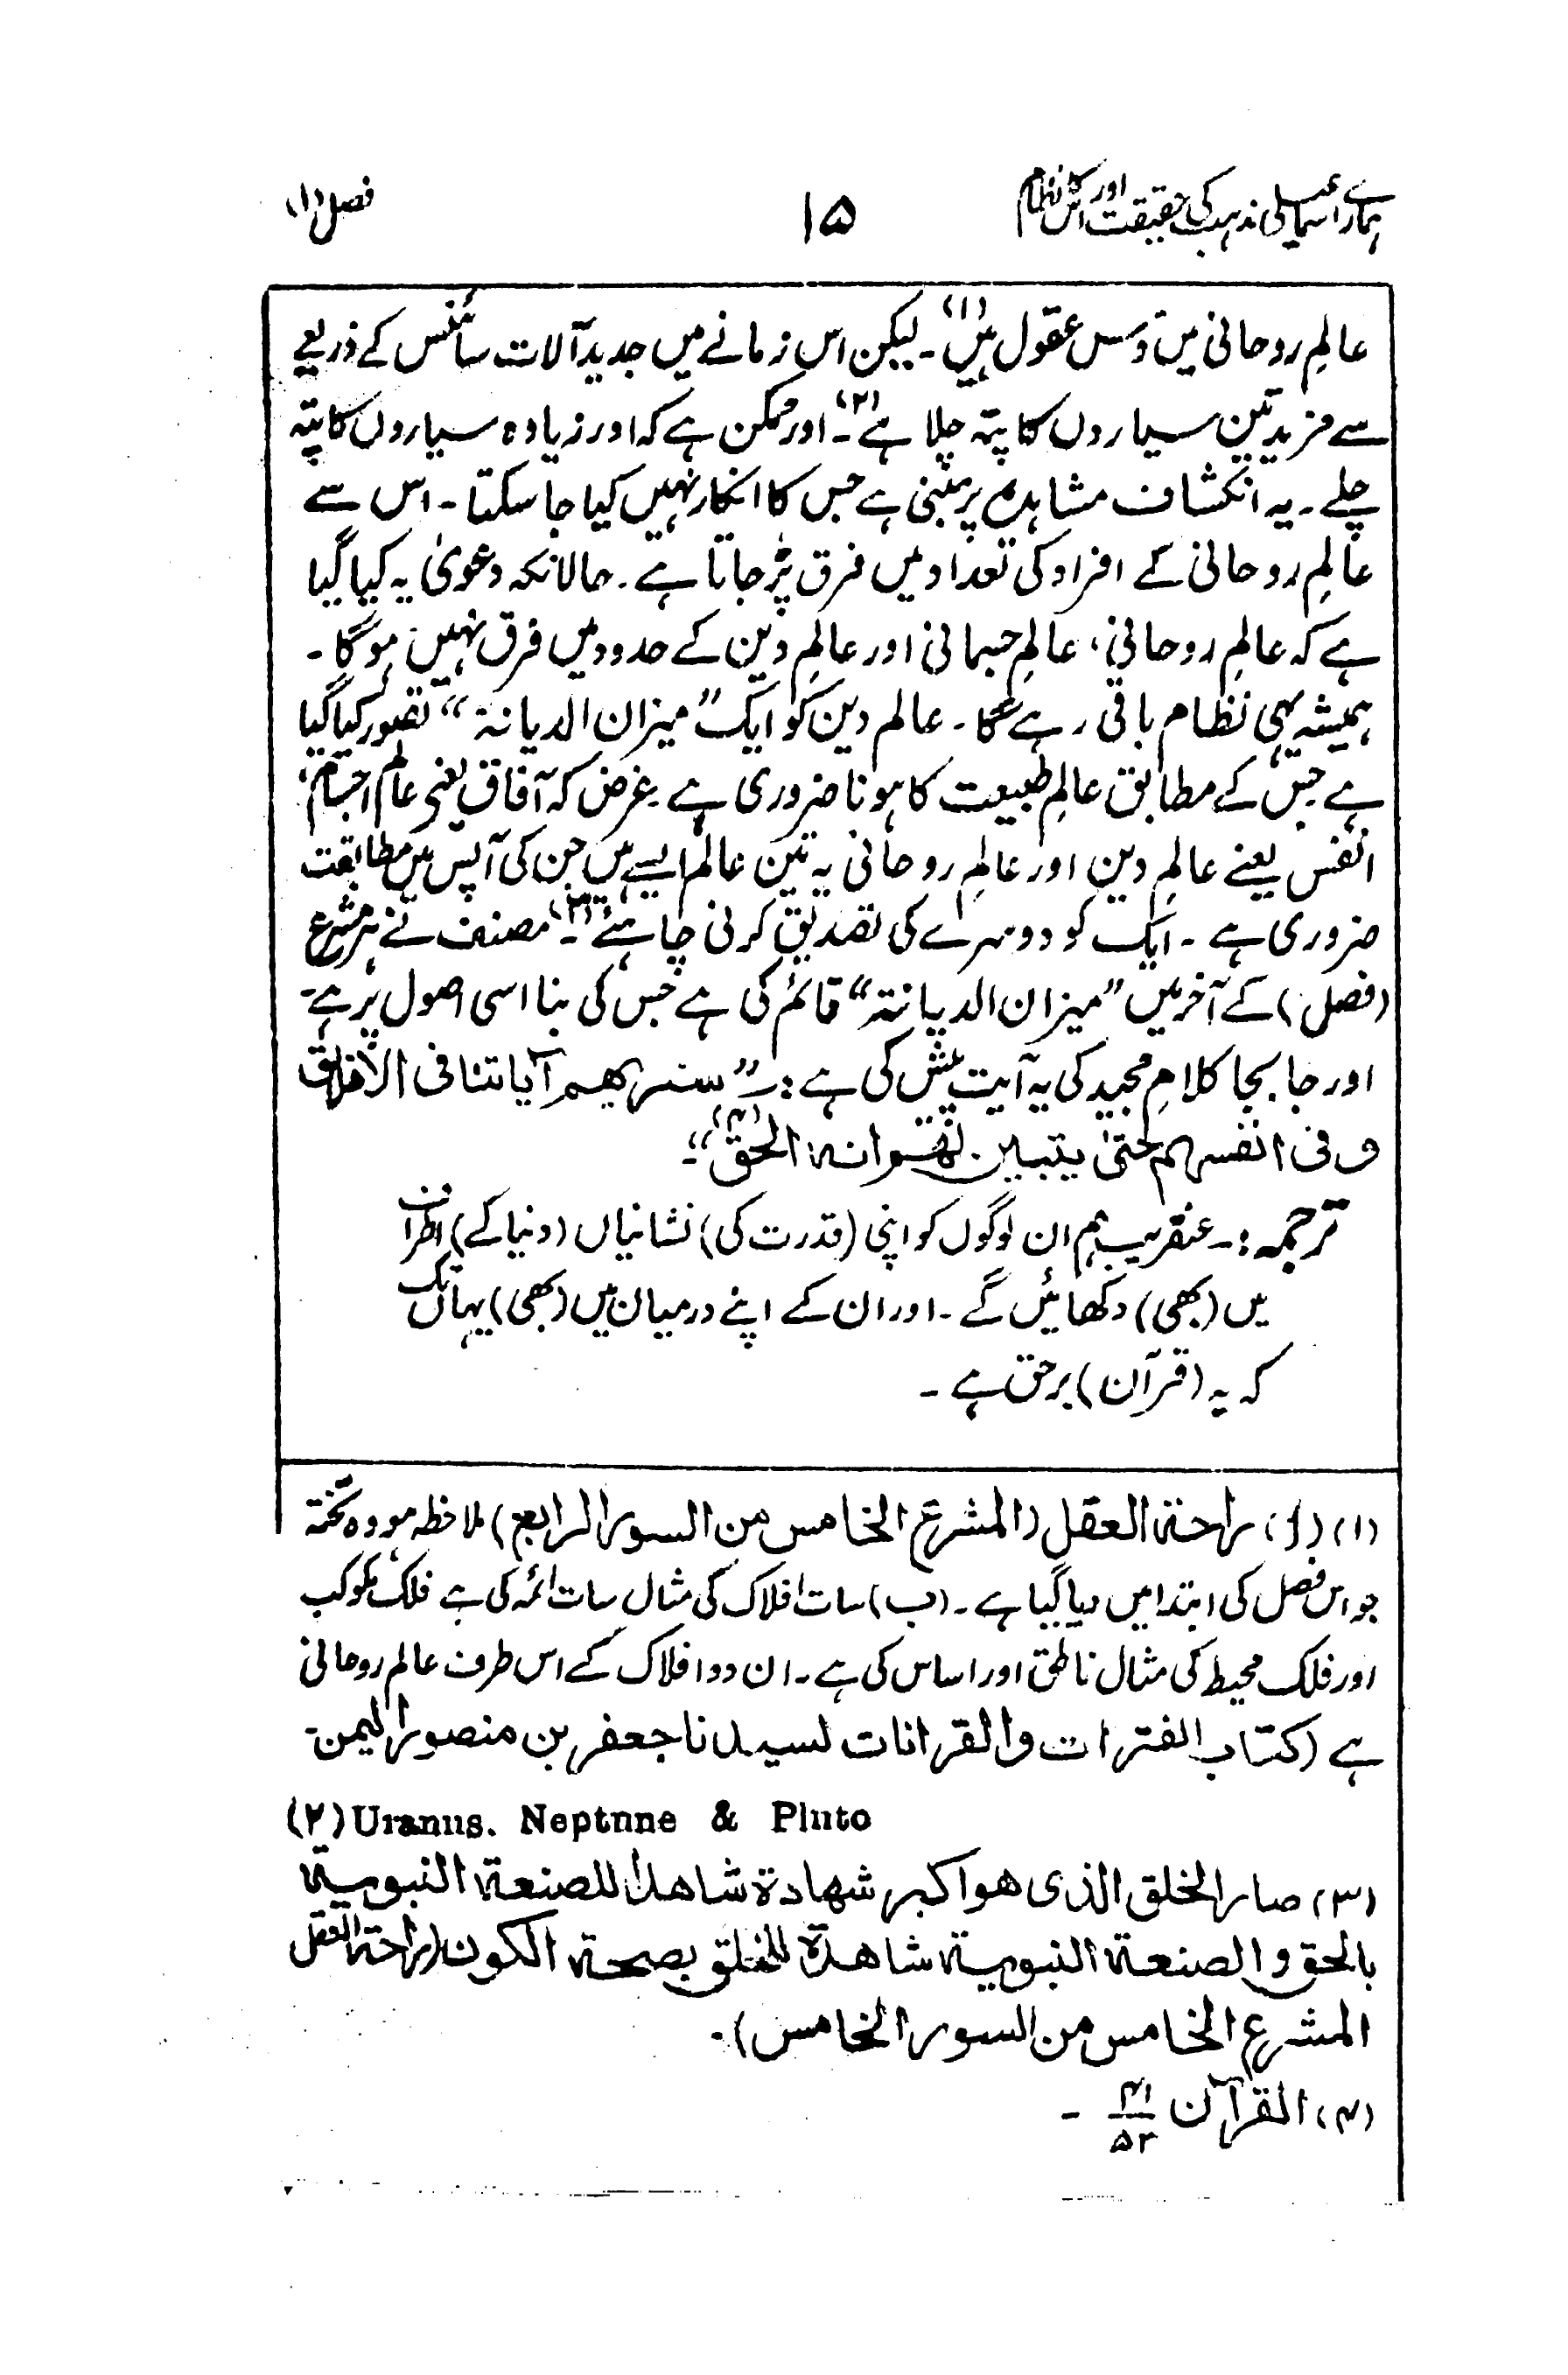 ہمارے اسماعیلی مذہب کی حقیقت اور اس کا نظام
۱۵
فصل (۱)
عالمِ روحانی میں دَس عقول ہیں (۱)۔ لیکن اس زمانے میں جدید آلات سائنس کے ذریعے
سے مزید تین سیاروں کا پتہ چلا ہے (۲)۔ اور ممکن ہے کہ اور زیادہ سیاروں کا پتہ
چلے۔ یہ انکشاف مشاہدہ پر مبنی ہے جس کا انکار نہیں کیا جا سکتا۔ اس سے
عالمِ روحانی کے افراد کی تعداد میں فرق پڑ جاتا ہے۔ حالانکہ دعویٰ یہ کیا گیا
ہے کہ عالمِ روحانی، عالمِ جسمانی اور عالمِ دین کے حدود میں فرق نہیں ہوگا۔
ہمیشہ یہی نظام باقی رہے گا۔ عالم دین کو ایک ”میزان الدیانۃ“ تصور کیا گیا
ہے جس کے مطابق عالمِ طبیعت کا ہونا ضروری ہے۔ غرض کہ آفاق یعنی عالم اجسام،
انفس یعنے عالمِ دین اور عالمِ روحانی یہ تین عالم ایسے ہیں جن کی آپس میں مطابقت
ضروری ہے۔ ایک کو دوسرے کی تصدیق کرنی چاہئے (۳)۔ مصنف نے ہر مشرع
(فصل) کے آخر میں ”میزان الدیانۃ“ قائم کی ہے جس کی بنا اسی اصول پر ہے۔
اور جا بجا کلامِ مجید کی یہ آیت پیش کی ہے:۔ ”سنریھم آیاتنا فی الافاق
و فی انفسہم حتیٰ یتبین لھم انہ الحق (۴)“۔
ترجمہ:۔ عنقریب ہم ان لوگوں کو اپنی (قدرت کی) نشانیاں (دنیا کے) اطراف
میں (بھی) دکھائیں گے۔ اور ان کے اپنے درمیان میں (بھی) یہاں تک
کہ یہ (قرآن) برحق ہے۔
(۱) (ا) راحۃ العقل (المشرع الخامس من السور الرابع) ملاحظہ ہو وہ تختہ
جو اس فصل کی ابتدا میں دیا گیا ہے۔ (ب) سات افلاک کی مثال سات ائمہ کی ہے فلک مکوکب
اور فلک محیط کی مثال ناطق اور اساس کی ہے۔ ان دو افلاک کے اس طرف عالم روحانی
ہے (کتاب الفترات والقرانات لسیدنا جعفر بن منصور الیمن۔
(۲) Uranus. Neptnne & Pluto
(۳) صار الخلق الذی ھو اکبر شھادۃ شاھدا للصنعۃ النبویۃ
بالحق والصنعۃ النبویۃ شاھدۃ للخلق بصحۃ الکون (راحۃ العقل
المشرع الخامس من السور الخامس)۔
(۴) القرآن ۴۱/۵۳ ۔